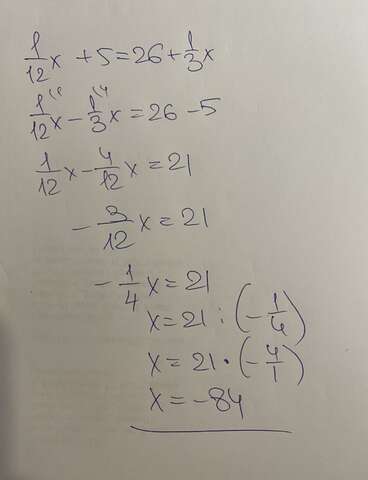 1/12 x + 5 = 26 + 1/3 x
1/12 x - 1/3 x = 26 - 5
1/12 x - 4/12 x = 21
- 3/12 x = 21
- 1/4 x = 21
x = 21 : (- 1/4)
x = 21 · (- 4/1)
x = -84